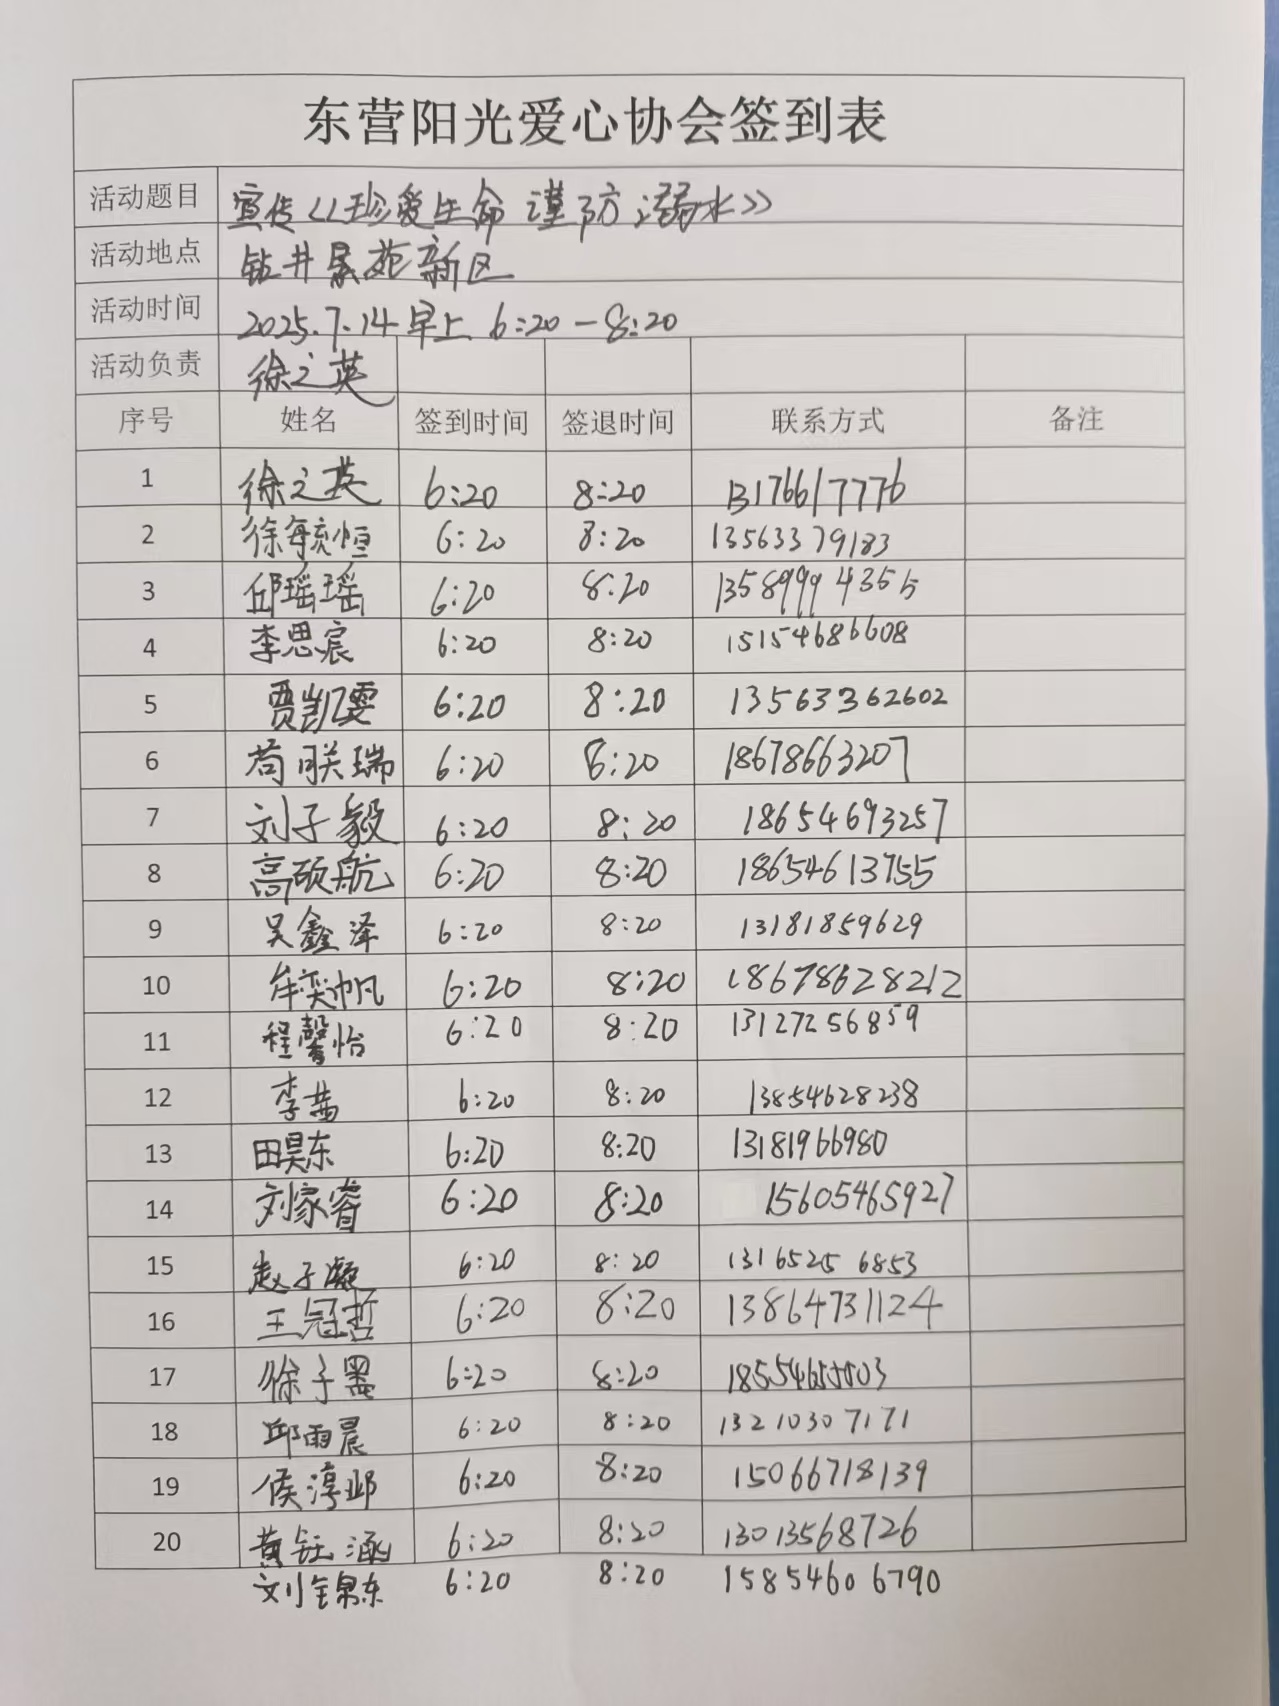 东营阳光爱心协会签到表
活动题目 宣传《珍爱生命 谨防溺水》
活动地点 钻井景苑新区
活动时间 2025.7.14早上 6:20-8:20
活动负责 徐之英
序号 姓名 签到时间 签退时间 联系方式 备注
1 徐之英 6:20 8:20 13176617776
2 徐毓恒 6:20 8:20 13563379183
3 邱瑶瑶 6:20 8:20 13589994355
4 李思宸 6:20 8:20 15154686608
5 贾凯雯 6:20 8:20 13563362602
6 苟联瑞 6:20 8:20 18678663207
7 刘子毅 6:20 8:20 18654693257
8 高硕航 6:20 8:20 18654613755
9 吴鑫泽 6:20 8:20 13181859629
10 牟奕帆 6:20 8:20 18678628212
11 程馨怡 6:20 8:20 13127256859
12 李茜 6:20 8:20 13854628238
13 田昊东 6:20 8:20 13181966980
14 刘家睿 6:20 8:20 15605465927
15 赵子凝 6:20 8:20 13165256853
16 王冠哲 6:20 8:20 13864731124
17 徐子墨 6:20 8:20
18 邱雨晨 6:20 8:20 13210307171
19 侯淳邺 6:20 8:20 15066718139
20 黄钰涵 6:20 8:20 13013568726
刘锦东 6:20 8:20 15854606790